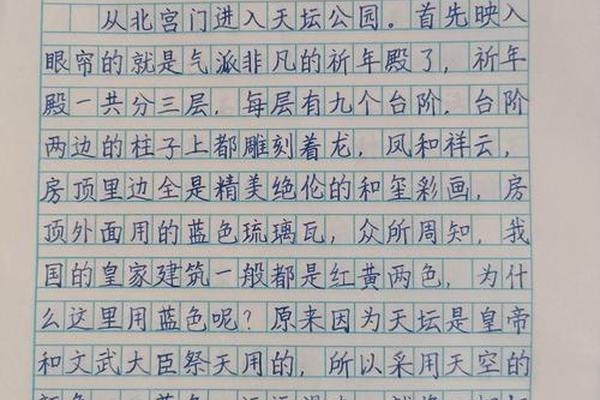 从北宫门进入天坛公园。首先映入
眼帘的就是气派非凡的祈年殿了，祈年
殿一共分三层，每层有九个台阶。台阶
两边的柱子上都雕刻着龙，凤和祥云，
房顶里边全是精美绝伦的和玺彩画，房
顶外面用的蓝色琉璃瓦，众所周知，我
国的皇家建筑一般都是红黄两色，为什
么这里用蓝色呢？原来因为天坛是皇帝
和文武大臣祭天用的，所以采用天空的